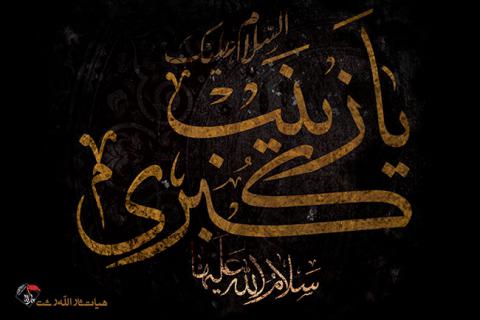 السلام علیک
یا زینب
کبری
سلام الله علیها
هیات ثارالله رشت